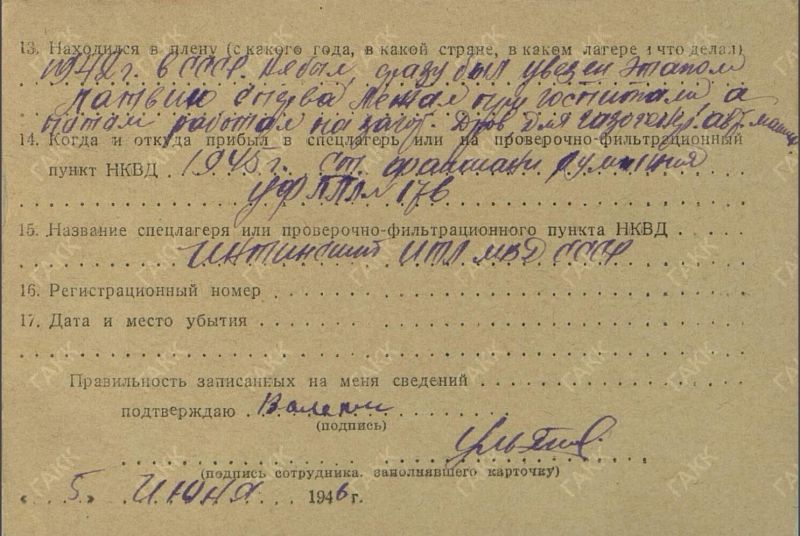 13. Находился в плену (с какого года, в какой стране, в каком лагере и что делал)
1942 г. в СССР. не был, сразу был увезен этапом
Латвию сперва лежал при госпитале а
патом работал на загот. Дров для газоген. авт. машин
14. Когда и откуда прибыл в спецлагерь или на проверочно-фильтрационный
пункт НКВД 1945 г. ст. фокшани румыния
176
15. Название спецлагеря или проверочно-фильтрационного пункта НКВД
Интинский ИТЛ МВД СССР
16. Регистрационный номер
17. Дата и место убытия
Правильность записанных на меня сведений
подтверждаю
(подпись)
(подпись сотрудника, заполнявшего карточку)
« 5 » Июня 1946 г.
ГАКК